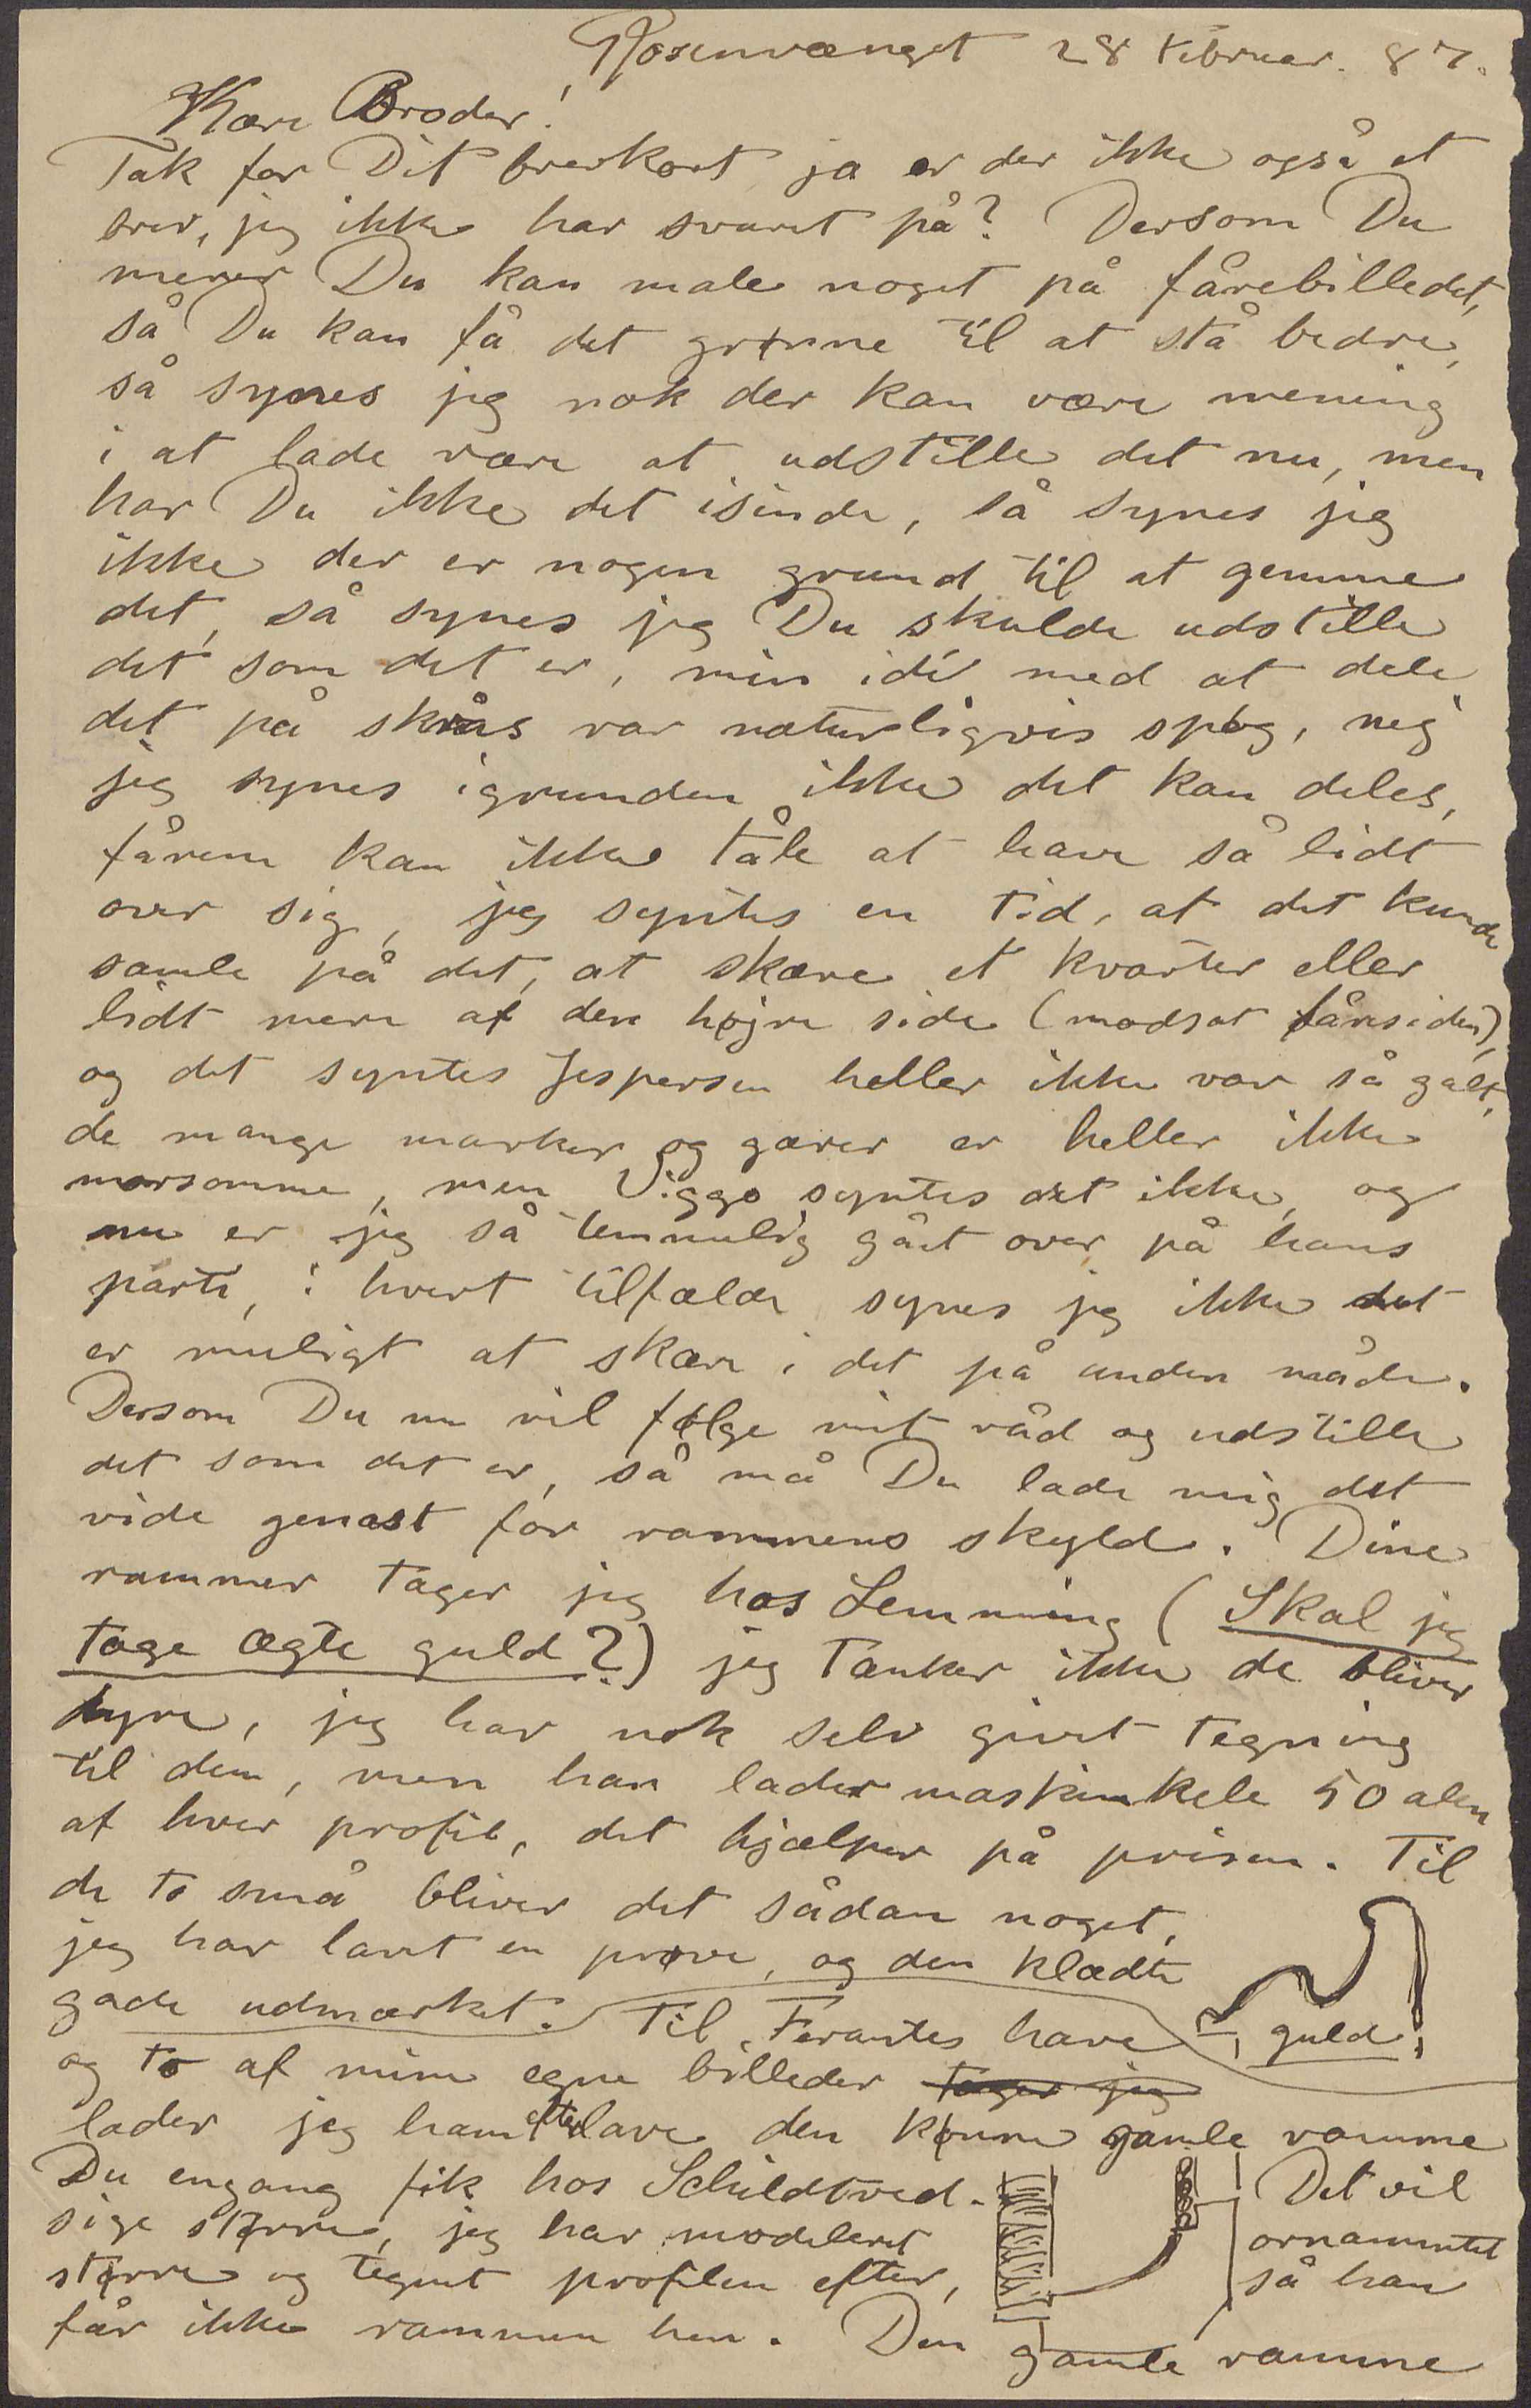 Rosenvænget 28 Februar. 87.
Kære Broder!
Tak for Dit brevkort ja er der ikke også et
brev, jeg ikke har svaret på? Dersom Du
mener Du kan male noget på fårebilledet,
så Du kan få det grønne til at stå bedre,
så synes jeg nok der kan være mening
i at lade være at udstille det nu, men
har Du ikke det isinde, så synes jeg
ikke der er nogen grund til at gemme
det, så synes jeg Du skulde udstille
det som det er, min idé med at dele
det på skrås var naturligvis spøg, nej
jeg synes igrunden ikke det kan deles,
fårene kan ikke tåle at have så lidt
over sig, jeg syntes en tid, at det kunde
samle på det, at skære et kvarter eller
lidt mere af den højre side (modsat fåresiden),
og det syntes Jespersen heller ikke var så galt,
de mange marker og gærer er heller ikke
morsomme, men Viggo syntes det ikke, og
nu er jeg så temmelig gået over på hans
parti, i hvert tilfælde synes jeg ikke det
er muligt at skære i det på anden måde.
Dersom Du nu vil følge mit råd og udstille
det som det er, så må Du lade mig det
vide genast for rammens skyld. Dine
rammer tager jeg hos Lemming (Skal jeg
tage ægte guld?) jeg tænker ikke de bliver
dyre, jeg har nok selv givet tegning
til dem, men han lader maskinkele 50 alen
af hver profil, det hjælper på prisen. Til
de to små bliver det sådan noget,
jeg har lavet en prøve, og den klædte
gade udmærket. Til Ferantes have
guld
og to af mine egne billeder tager jeg
lader jeg ham efterlave den kønne gamle ramme
Du engang fik hos Schildtved.
Det vil
sige større, jeg har modeleret
ornamentet
større og tegnet profilen efter,
så han
får ikke rammen hen. Den gamle ramme